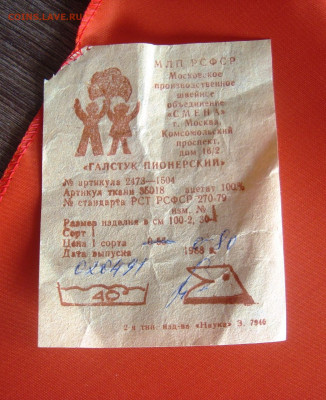 COINS.LAVE.RU
МЛП РСФСР
Московское
производственное
швейное
объединение
«СМЕНА»
г. Москва,
Комсомольский
проспект,
дом 16/2.
«ГАЛСТУК ПИОНЕРСКИЙ»
№ артикула 2473—1504
Артикул ткани 35018 ацетат 100%
№ стандарта РСТ РСФСР 270-79
изм. № 1
Размер изделия в см 100-2, 30-1
Сорт 1
Цена 1 сорта 0-80
Дата выпуска 1988 г.
40°
2-я тип. изд-ва «Наука» З. 7946